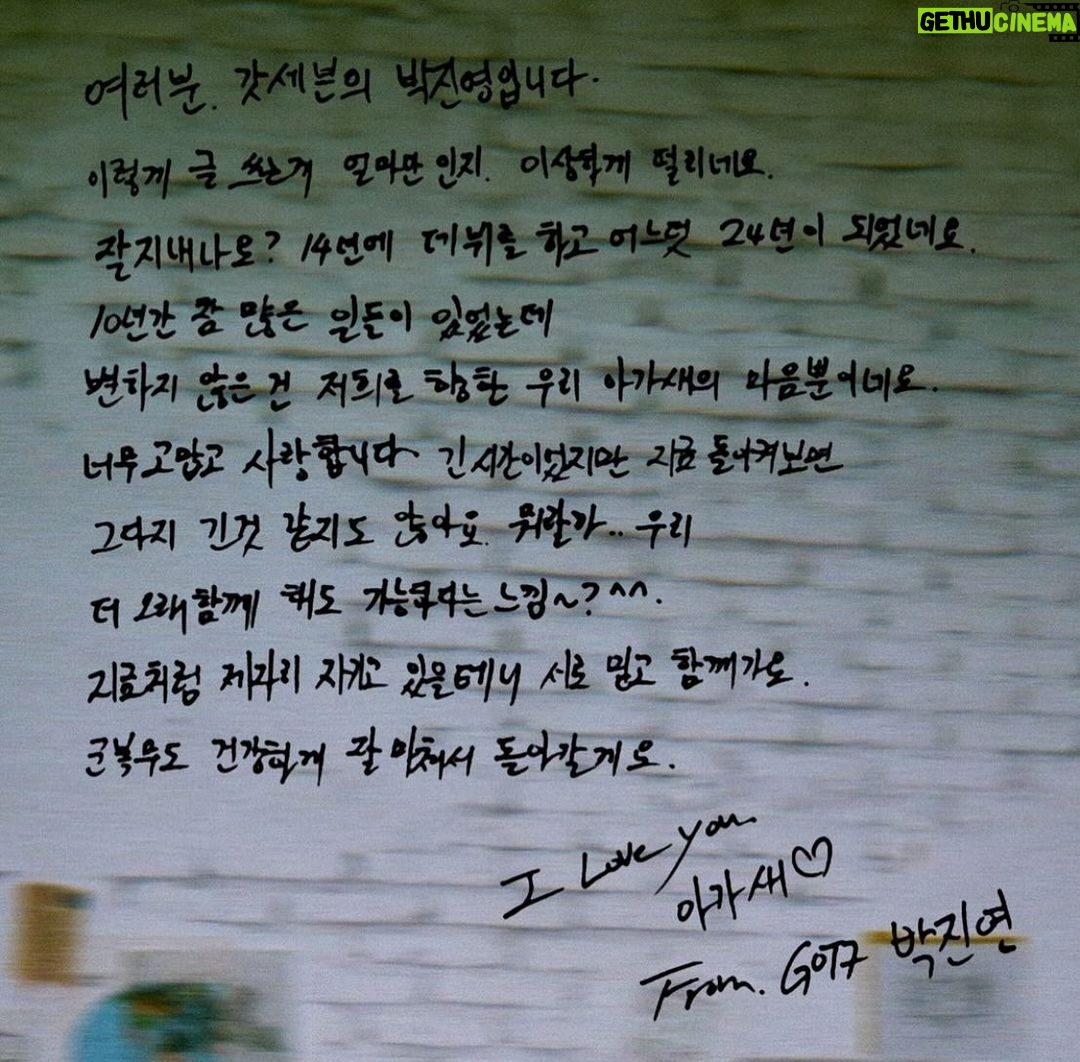 GETHUCINEMA
여러분. 갓세븐의 박진영입니다.
이렇게 글 쓰는게 얼마만인지. 이상하게 떨리네요.
잘지내나요? 14년에 데뷔를 하고 어느덧 24년이 되었네요.
10년간 참 많은 일들이 있었는데
변하지 않은 건 저희를 향한 우리 아가새의 마음뿐이네요.
너무 고맙고 사랑합니다 긴 시간이었지만 지금 돌이켜보면
그다지 긴것 같지도 않아요. 뭐랄까.. 우리
더 오래 함께 해도 가능하다는 느낌~?^^.
지금처럼 제자리 지키고 있을테니 서로 믿고 함께가요.
군복무도 건강하게 잘 마쳐서 돌아갈게요.
I Love you
아가새♡
From. GOT7 박진영